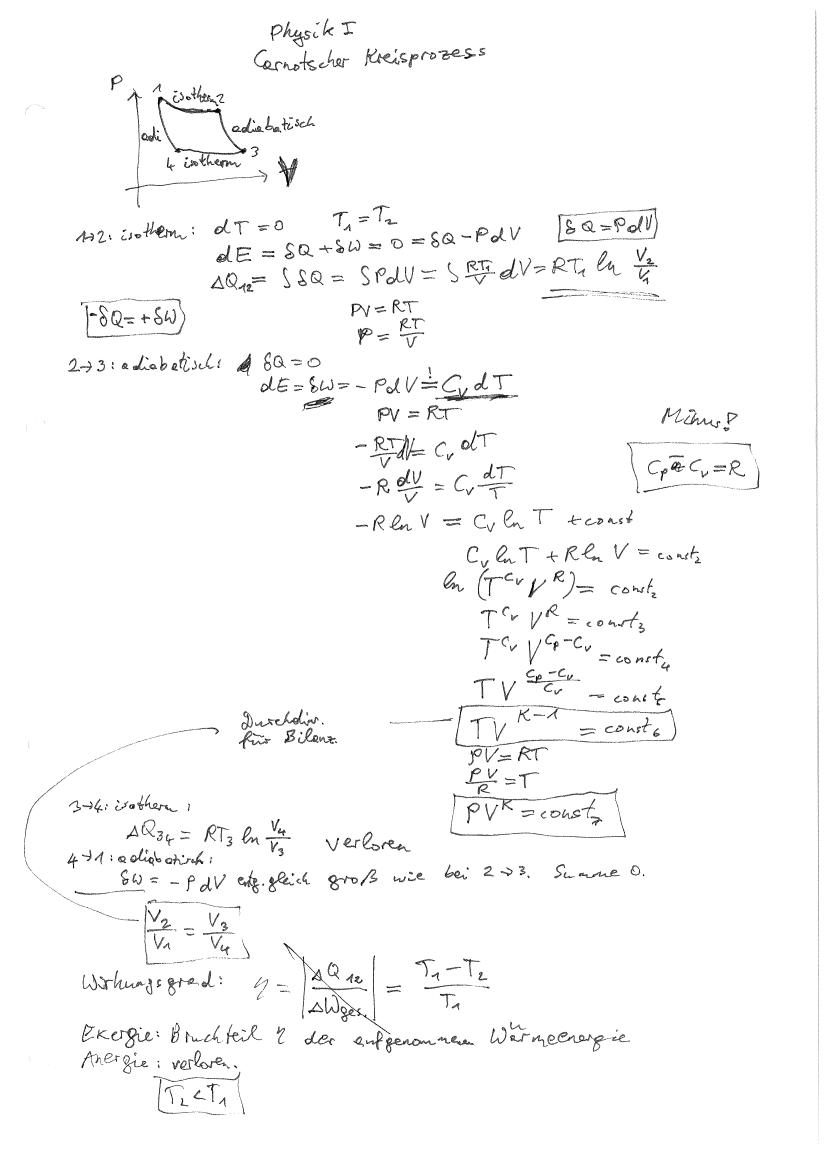 Physik I
Carnotscher Kreisprozess
P
1
isotherm 2
adi
adiabatisch
4 isotherm
3
V
1→2: isotherm: dT = 0 T₁ = T₂
dE = δQ + δW = 0 = δQ - PdV
δQ = PdV
ΔQ₁₂ = ∫δQ = ∫PdV = ∫ RT₁/V dV = RT₁ ln V₂/V₁
-δQ = +δW
PV = RT
P = RT/V
2→3: adiabatisch: δQ = 0
dE = δW = - PdV =! Cᵥ dT
PV = RT
Minus!
- RT/V dV = Cᵥ dT
Cₚ - Cᵥ = R
-R dV/V = Cᵥ dT/T
-R ln V = Cᵥ ln T + const
Cᵥ ln T + R ln V = const₂
ln (T^Cᵥ V^R) = const₂
T^Cᵥ V^R = const₃
T^Cᵥ V^(Cₚ-Cᵥ) = const₄
T V^((Cₚ-Cᵥ)/Cᵥ) = const₅
Durchdiv.
für Bilanz.
TV^(K-1) = const₆
PV = RT
PV/R = T
PV^K = const₇
3→4: isotherm:
ΔQ₃₄ = RT₃ ln V₄/V₃ verloren
4→1: adiabatisch:
δW = - PdV gleich groß wie bei 2→3. Summe 0.
V₂/V₁ = V₃/V₄
Wirkungsgrad: η = |ΔQ₁₂/ΔWges.| = (T₁-T₂)/T₁
Exergie: Bruchteil η der aufgenommenen Wärmeenergie
Anergie: verloren.
T₂ < T₁